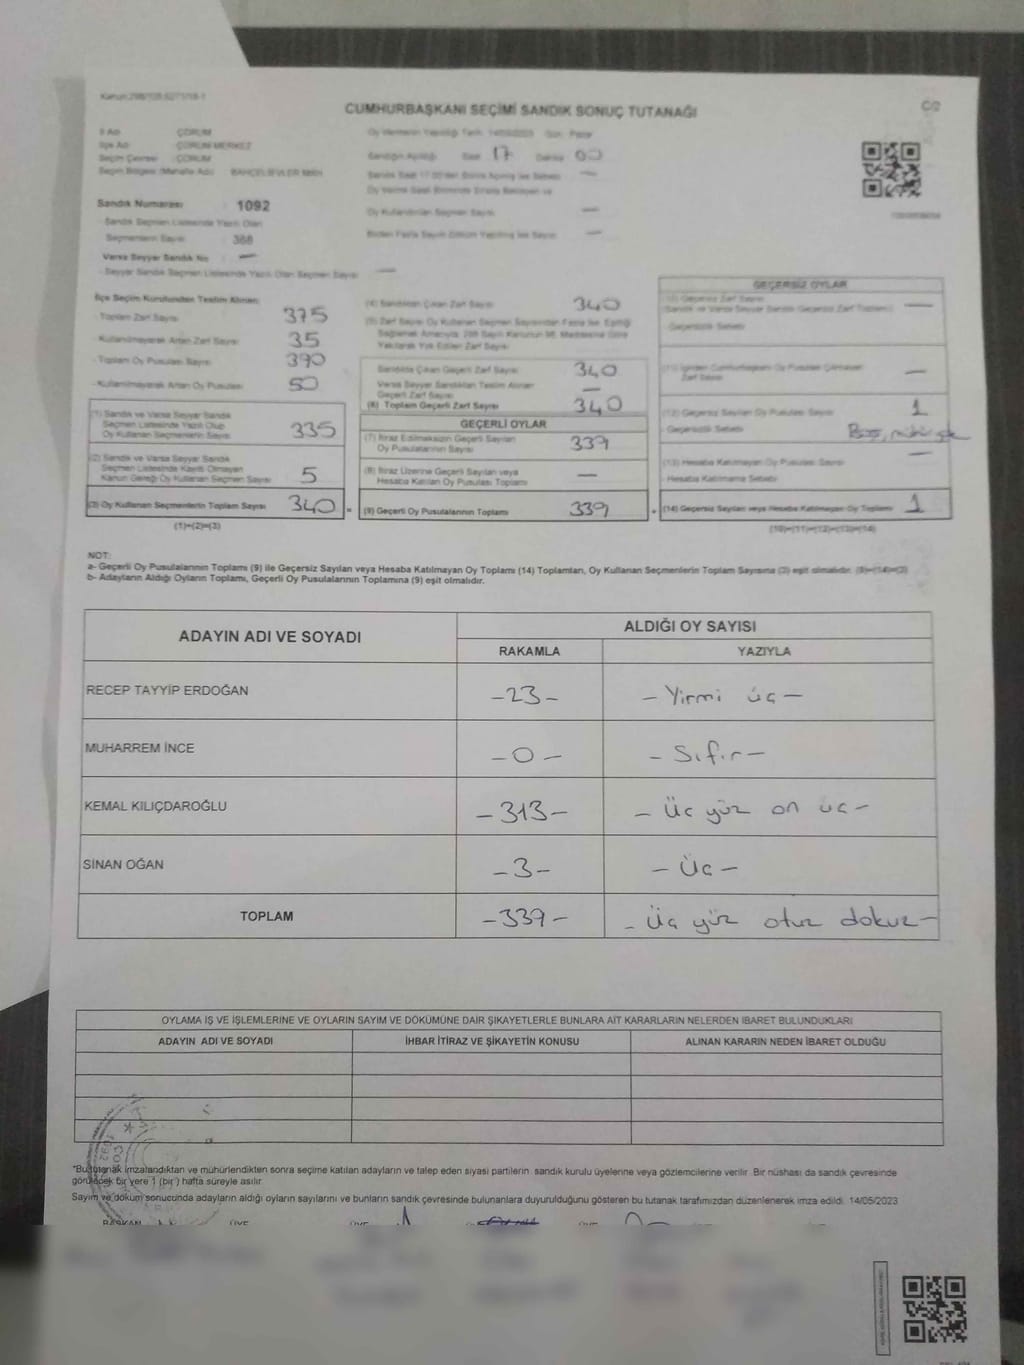 Kanun:298/105,6271/18-1
CUMHURBAŞKANI SEÇİMİ SANDIK SONUÇ TUTANAĞI
İl Adı : ÇORUM
İlçe Adı : ÇORUM MERKEZ
Seçim Çevresi : ÇORUM
Seçim Bölgesi (Mahalle Adı) BAHÇELİEVLER MAH.
Oy Vermenin Yapıldığı Tarih: 14/05/2023 Gün: Pazar
Sandığın Açıldığı Saat 17 Dakika 00
Sandık Saat 17:00'den Sonra Açılmış İse Sebebi —
Sandık Numarası : 1092
- Sandık Seçmen Listesinde Yazılı Olan
Seçmenlerin Sayısı : 388
Varsa Seyyar Sandık No —
- Seyyar Sandık Seçmen Listesinde Yazılı Olan Seçmen Sayısı —
Oy Kullandırılan Seçmen Sayısı —
Birden Fazla Sayım Döküm Yapılmış İse Sayısı —
İlçe Seçim Kurulundan Teslim Alınan;
- Toplam Zarf Sayısı 375
- Kullanılmayarak Artan Zarf Sayısı 35
- Toplam Oy Pusulası Sayısı 390
- Kullanılmayarak Artan Oy Pusulası 50
(1) Sandık ve Varsa Seyyar Sandık
Seçmen Listesinde Yazılı Olup
Oy Kullanan Seçmenlerin Sayısı 335
(2) Sandık ve Varsa Seyyar Sandık
Seçmen Listesinde Kayıtlı Olmayan
Kanun Gereği Oy Kullanan Seçmen Sayısı 5
(3) Oy Kullanan Seçmenlerin Toplam Sayısı 340 =
(1)+(2)=(3)
(4) Sandıktan Çıkan Zarf Sayısı 340
(5) Zarf Sayısı Oy Kullanan Seçmen Sayısından Fazla İse, Eşitliği
Sağlamak Amacıyla, 298 Sayılı Kanunun 98. Maddesine Göre
Yakılarak Yok Edilen Zarf Sayısı
Sandıkta Çıkan Geçerli Zarf Sayısı 340
Varsa Seyyar Sandıktan Teslim Alınan
Geçerli Zarf Sayısı —
(6) Toplam Geçerli Zarf Sayısı 340
GEÇERLİ OYLAR
(7) İtiraz Edilmeksizin Geçerli Sayılan
Oy Pusulalarının Sayısı 339
(8) İtiraz Üzerine Geçerli Sayılan veya
Hesaba Katılan Oy Pusulası Toplamı —
(9) Geçerli Oy Pusulalarının Toplamı 339 +
GEÇERSİZ OYLAR
(10) Geçersiz Zarf Sayısı
(Sandık ve Varsa Seyyar Sandık Geçersiz Zarf Toplamı) —
- Geçersizlik Sebebi
(11) İçinden Cumhurbaşkanı Oy Pusulası Çıkmayan
Zarf Sayısı —
(12) Geçersiz Sayılan Oy Pusulası Sayısı 1
- Geçersizlik Sebebi
(13) Hesaba Katılmayan Oy Pusulası Sayısı —
- Hesaba Katılmama Sebebi
(14) Geçersiz Sayılan veya Hesaba Katılmayan Oy Toplamı 1
(10)+(11)+(12)+(13)=(14)
NOT:
a- Geçerli Oy Pusulalarının Toplamı (9) ile Geçersiz Sayılan veya Hesaba Katılmayan Oy Toplamı (14) Toplamları, Oy Kullanan Seçmenlerin Toplam Sayısına (3) eşit olmalıdır. (9)+(14)=(3)
b- Adayların Aldığı Oyların Toplamı, Geçerli Oy Pusulalarının Toplamına (9) eşit olmalıdır.
ADAYIN ADI VE SOYADI
ALDIĞI OY SAYISI
RAKAMLA YAZIYLA
RECEP TAYYİP ERDOĞAN -23- - Yirmi üç -
MUHARREM İNCE -0- - Sıfır -
KEMAL KILIÇDAROĞLU -313- - Üç yüz on üç -
SİNAN OĞAN -3- - Üç -
TOPLAM -339- - Üç yüz otuz dokuz -
OYLAMA İŞ VE İŞLEMLERİNE VE OYLARIN SAYIM VE DÖKÜMÜNE DAİR ŞİKAYETLERLE BUNLARA AİT KARARLARIN NELERDEN İBARET BULUNDUKLARI
ADAYIN ADI VE SOYADI İHBAR İTİRAZ VE ŞİKAYETİN KONUSU ALINAN KARARIN NEDEN İBARET OLDUĞU
*Bu tutanak imzalandıktan ve mühürlendikten sonra seçime katılan adayların ve talep eden siyasi partilerin sandık kurulu üyelerine veya gözlemcilerine verilir. Bir nüshası da sandık çevresinde
görülecek bir yere 1 (bir) hafta süreyle asılır.
Sayım ve döküm sonucunda adayların aldığı oyların sayılarını ve bunların sandık çevresinde bulunanlara duyurulduğunu gösteren bu tutanak tarafımızdan düzenlenerek imza edildi. 14/05/2023
BAŞKAN ÜYE ÜYE ÜYE